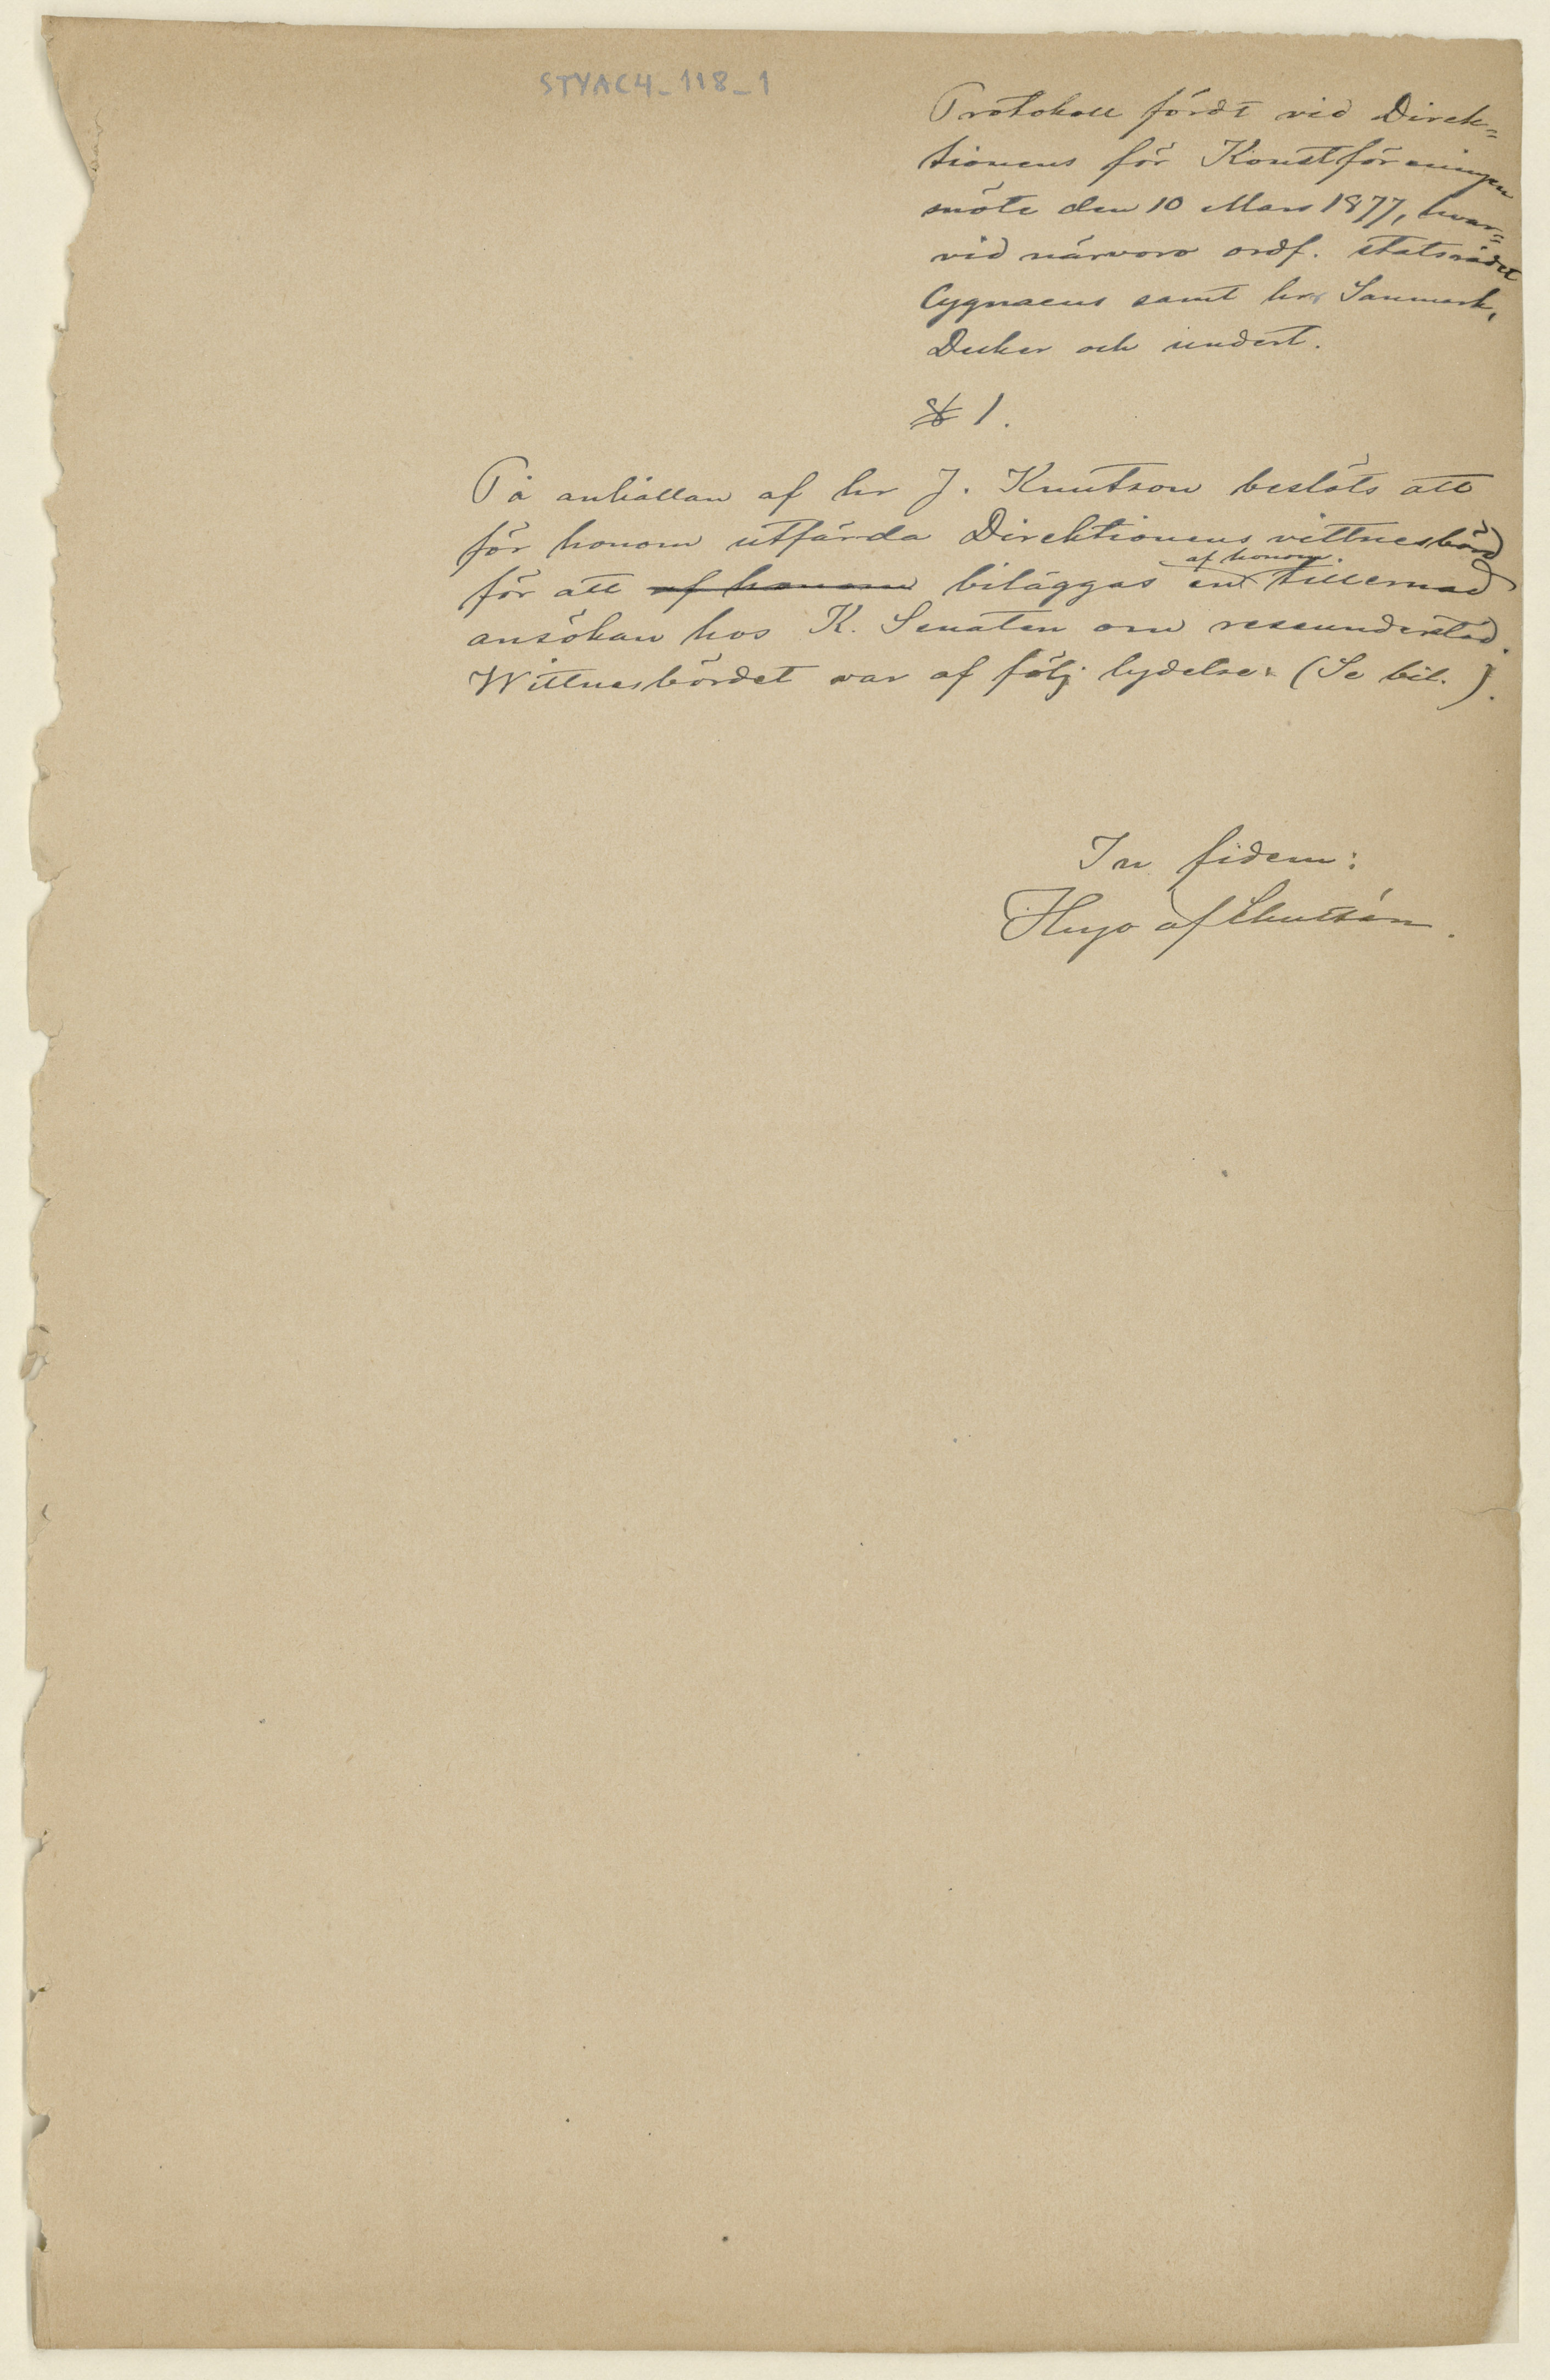 STYAC4_118_1
Protokoll fördt vid Direk=
tionens för Konstföreningen
möte den 10 Mars 1877, hvar=
vid närvoro ordf. statsrådet
Cygnaeus samt hrr Sanmark,
Decker och undert.
§ 1.
På anhållan af hr J. Knutson beslöts att
för honom utfärda Direktionens vittnesbörd
af honom
för att af honom biläggas en tillernad
ansökan hos K. Senaten om reseunderstöd.
Wittnesbördet var af följ lydelse: (Se bil. ).
In fidem:
Hugo af Schultén.